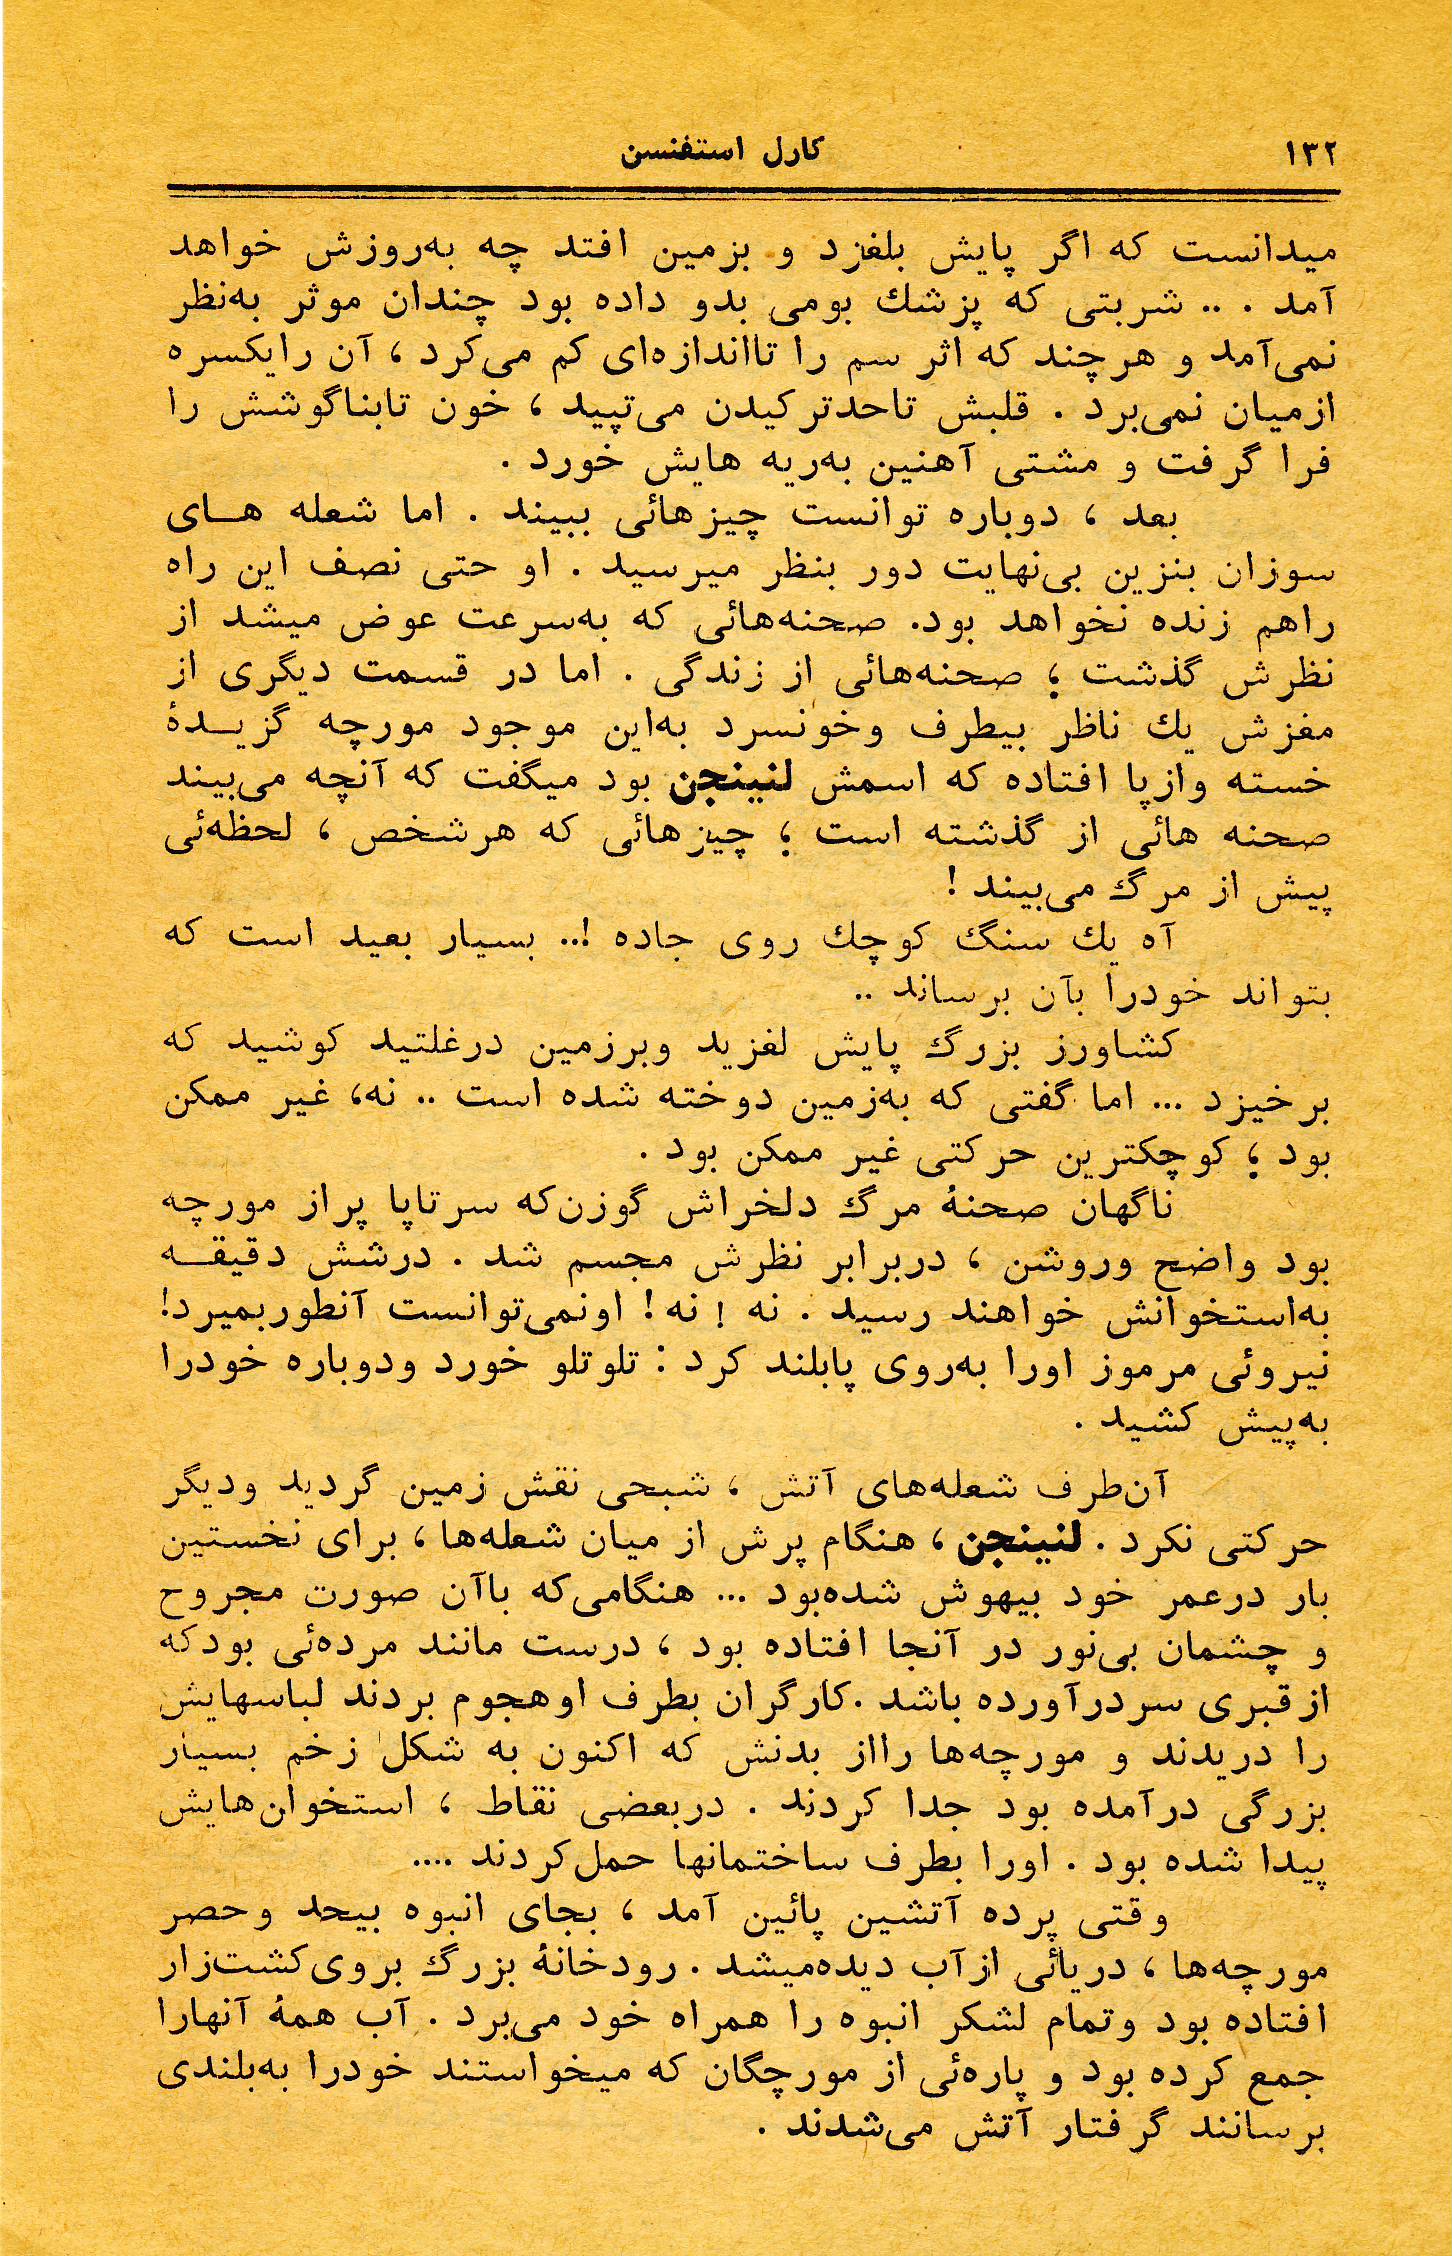 ۱۳۲
کارل استفنسن
میدانست که اگر پایش بلغزد و بزمین افتد چه به‌روزش خواهد
آمد . .. شربتی که پزشك بومی بدو داده بود چندان موثر به‌نظر
نمی‌آمد و هرچند که اثر سم را تااندازه‌ای کم می‌کرد ، آن رایکسره
ازمیان نمی‌برد . قلبش تاحدترکیدن می‌تپید ، خون تابناگوشش را
فرا گرفت و مشتی آهنین به‌ریه هایش خورد .
بعد ، دوباره توانست چیزهائی ببیند . اما شعله هـای
سوزان بنزین بی‌نهایت دور بنظر میرسید . او حتی نصف این راه
راهم زنده نخواهد بود. صحنه‌هائی که به‌سرعت عوض میشد از
نظرش گذشت ؛ صحنه‌هائی از زندگی . اما در قسمت دیگری از
مغزش یك ناظر بیطرف وخونسرد به‌این موجود مورچه گزیـدهٔ
خسته وازپا افتاده که اسمش لنینجن بود میگفت که آنچه می‌بیند
صحنه هائی از گذشته است ؛ چیزهائی که هرشخص ، لحظه‌ئی
پیش از مرگ می‌بیند !
آه یك سنگ کوچك روی جاده !.. بسیار بعید است که
بتواند خودرا بآن برساند ..
کشاورز بزرگ پایش لغزید وبرزمین درغلتید کوشید که
برخیزد ... اما گفتی که به‌زمین دوخته شده است .. نه، غیر ممکن
بود ؛ کوچکترین حرکتی غیر ممکن بود .
ناگهان صحنهٔ مرگ دلخراش گوزن‌که سرتاپا پراز مورچه
بود واضح وروشن ، دربرابر نظرش مجسم شد . درشش دقیقـه
به‌استخوانش خواهند رسید . نه ! نه ! اونمی‌توانست آنطوربمیرد!
نیروئی مرموز اورا به‌روی پابلند کرد : تلوتلو خورد ودوباره خودرا
به‌پیش کشید .
آن‌طرف شعله‌های آتش ، شبحی نقش زمین گردید ودیگر
حرکتی نکرد . لنینجن ، هنگام پرش از میان شعله‌ها ، برای نخستین
بار درعمر خود بیهوش شده‌بود ... هنگامی‌که باآن صورت مجروح
و چشمان بی‌نور در آنجا افتاده بود ، درست مانند مرده‌ئی بودکه
ازقبری سردرآورده باشد .کارگران بطرف اوهجوم بردند لباسهایش
را دریدند و مورچه‌ها رااز بدنش که اکنون به شکل زخم بسیار
بزرگی درآمده بود جدا کردند . دربعضی نقاط ، استخوان‌هایش
پیدا شده بود . اورا بطرف ساختمانها حمل‌کردند ....
وقتی پرده آتشین پائین آمد ، بجای انبوه بیحد وحصر
مورچه‌ها ، دریائی ازآب دیده‌میشد . رودخانهٔ بزرگ بروی‌کشت‌زار
افتاده بود وتمام لشکر انبوه را همراه خود می‌برد . آب همهٔ آنهارا
جمع کرده بود و پاره‌ئی از مورچگان که میخواستند خودرا به‌بلندی
برسانند گرفتار آتش می‌شدند .